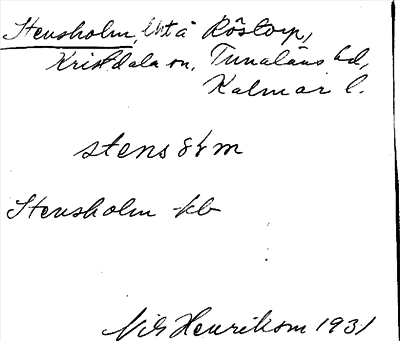 Stensholm, lht å Röstorp,
Kristdala sn, Tunaläns hd,
Kalmar l.
stens
Stensholm kb
Nils Henriksson 1931